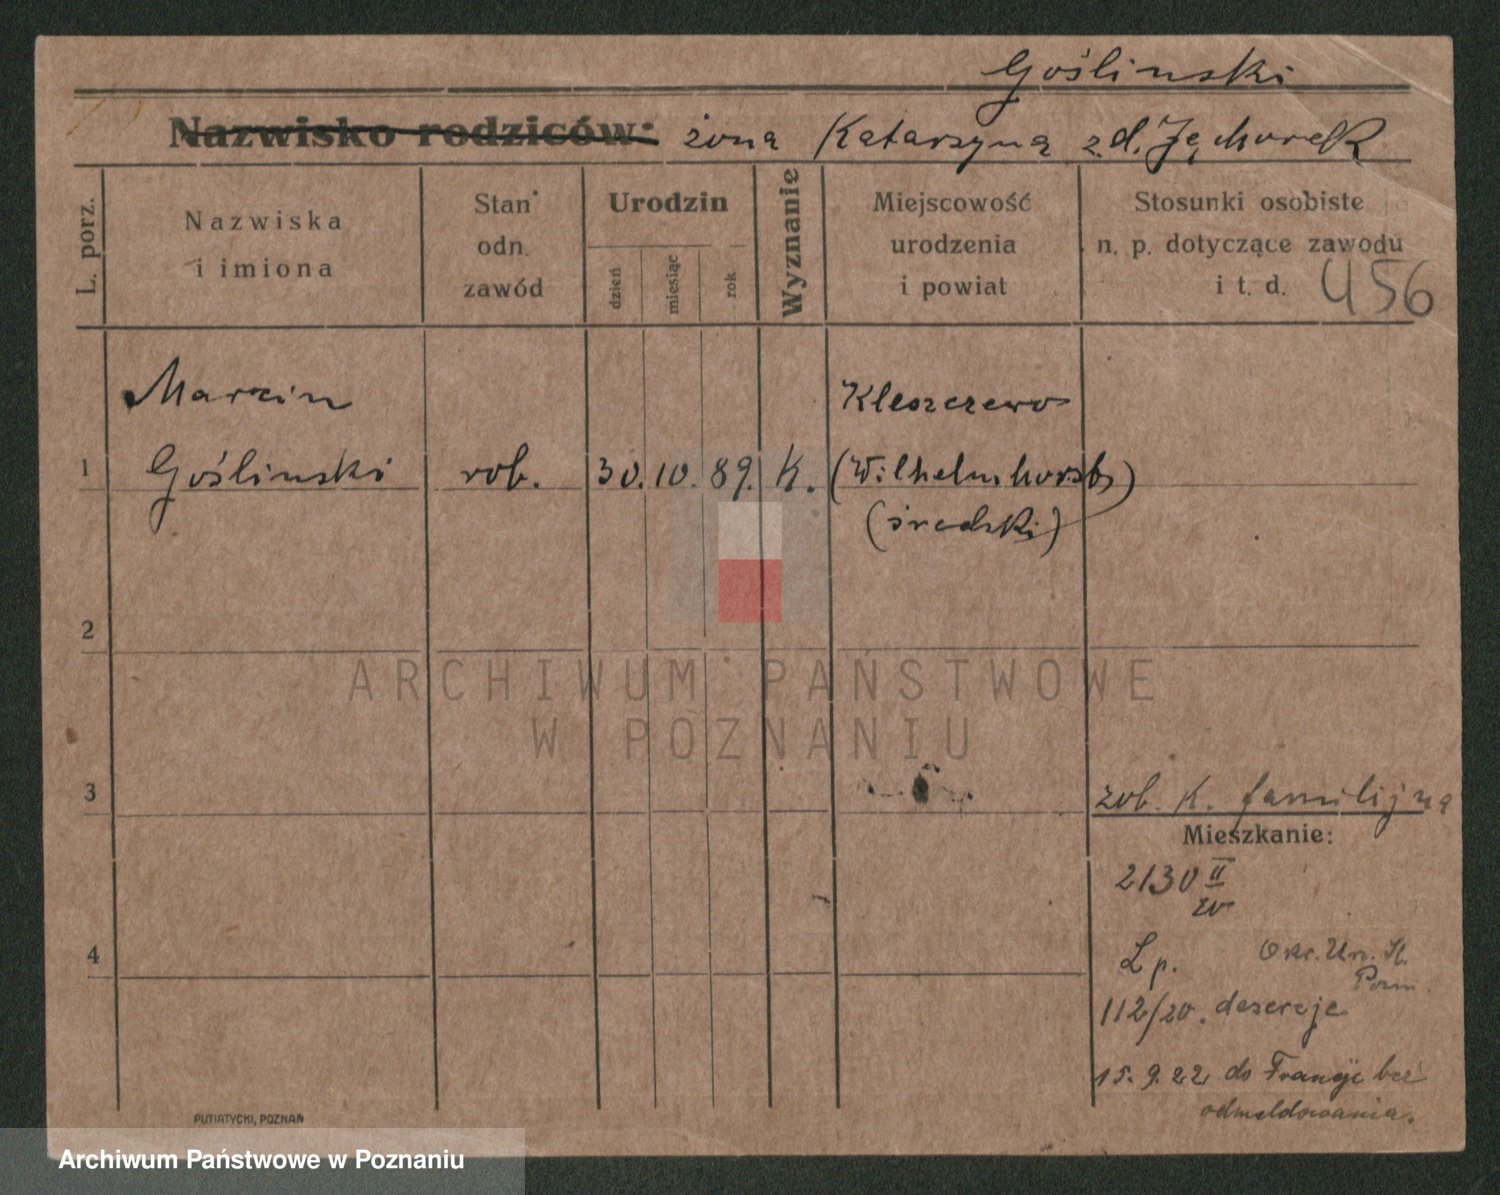 Goślinski
Nazwisko rodziców: żona Katarzyna z.d. Jęchorek
L. porz.
Nazwiska
i imiona
Stan
odn.
zawód
Urodzin
dzień
miesiąc
rok
Wyznanie
Miejscowość
urodzenia
i powiat
Stosunki osobiste
n. p. dotyczące zawodu
i t. d. 456
Marcin
Kleszczewo
1 Goślinski rob. 30. 10. 89. K. (Wilhelmhorst)
(średzki)
2
ARCHIWUM PAŃSTWOWE
W POZNANIU
3
zob. K. familijna
Mieszkanie:
2130 II
IV
4
Lp.
112/20. desercje
15. 9. 22 do Francji bez
odmeldowania.
PUTIATYCKI, POZNAŃ
Archiwum Państwowe w Poznaniu